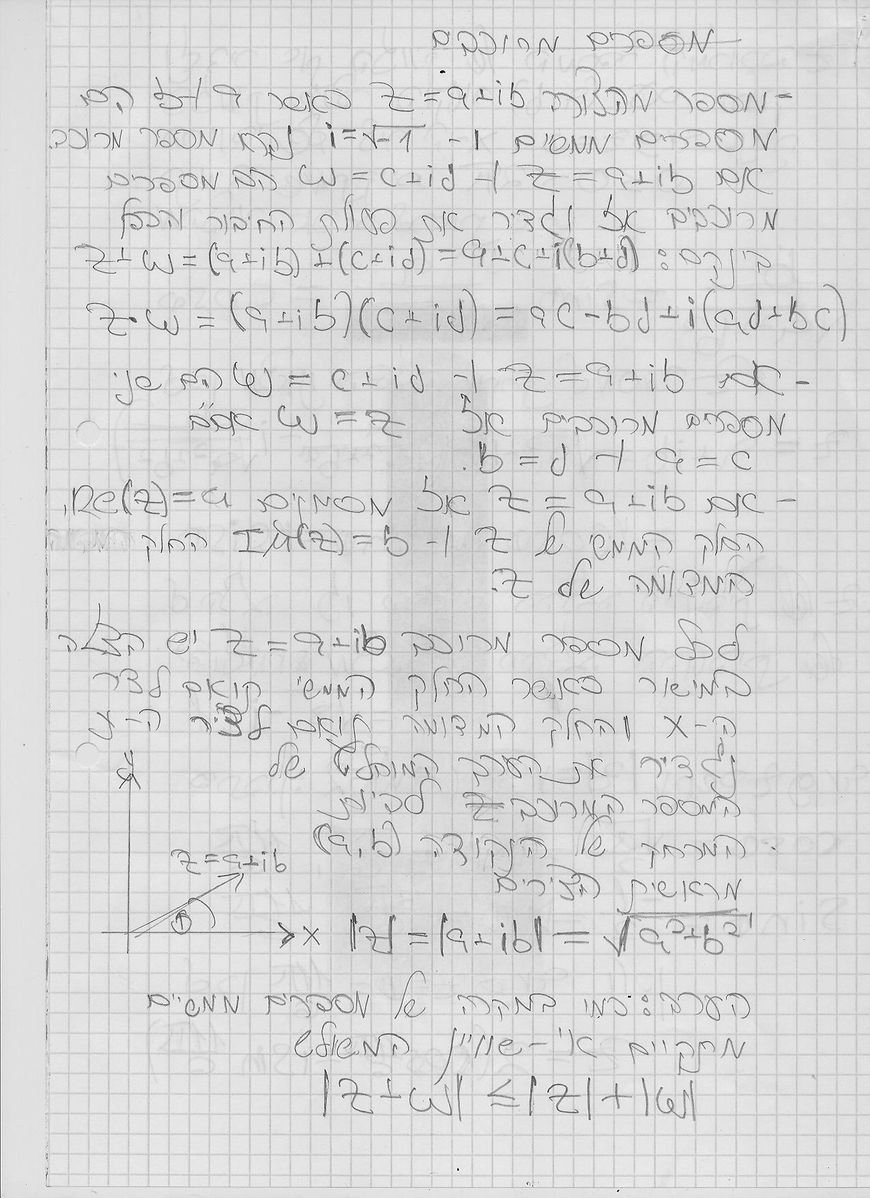 מספרים מרוכבים
- מספר מהצורה z=a+ib כאשר a ו-b הם
מספרים ממשיים ו- i=√-1 נקרא מספר מרוכב.
אם z=a+ib ו- w=c+id הם מספרים
מרוכבים אז נגדיר את פעולת החיבור והכפל
ביניהם: z+w=(a+ib)+(c+id)=a+c+i(b+d)
z·w=(a+ib)(c+id)=ac-bd+i(ad+bc)
- אם z=a+ib ו- w=c+id הם שני
מספרים מרוכבים אז w=z אם"ם
a=c ו- b=d.
- אם z=a+ib אז מסמנים Re(z)=a,
החלק הממשי של z ו- Im(z)=b החלק
המדומה של z.
לכל מספר מרוכב z=a+ib יש הצגה
במישור כאשר החלק הממשי תואם לציר
ה-x והחלק המדומה תואם לציר ה-y
נגדיר את הערך המוחלט של
המספר המרוכב z להיות
המרחק של הנקודה (a,b)
מראשית הצירים
y
z=a+ib
θ
x
|z|=|a+ib|=√a²+b²
הערה: כמו במקרה של מספרים ממשיים
מתקיים אי-שוויון המשולש
|z+w|≤|z|+|w|